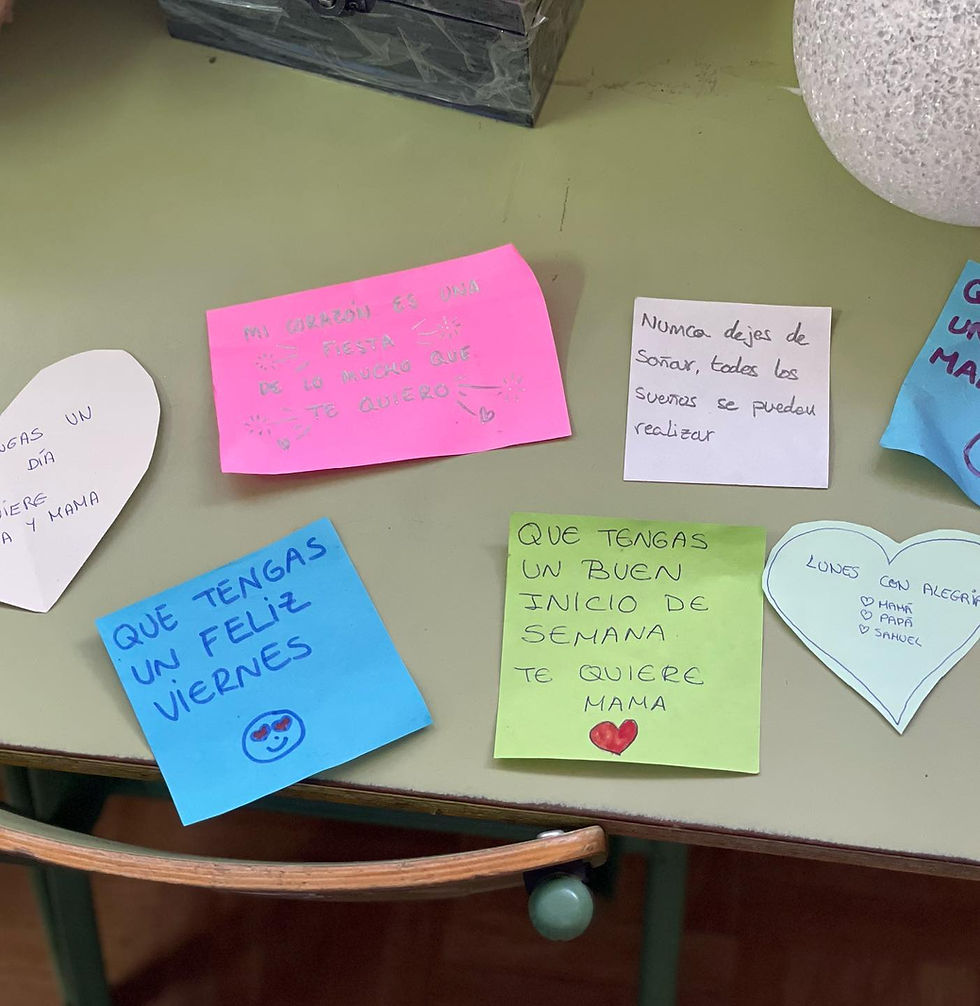 MI CORAZÓN ES UNA
FIESTA
DE LO MUCHO QUE
TE QUIERO
Nunca dejes de
soñar, todos los
sueños se pueden
realizar
UN
DÍA
Y MAMA
QUE TENGAS
UN FELIZ
VIERNES
QUE TENGAS
UN BUEN
INICIO DE
SEMANA
TE QUIERE
MAMA
LUNES CON ALEGRÍA
MAMÁ
PAPÁ
SAMUEL